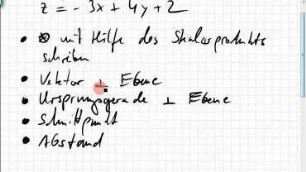 z = - 3x + 4y + 2
• mit Hilfe des Skalarprodukts
schreiben
• Vektor ⊥ Ebene
• Ursprungsgerade ⊥ Ebene
• Schnittpunkt
• Abstand